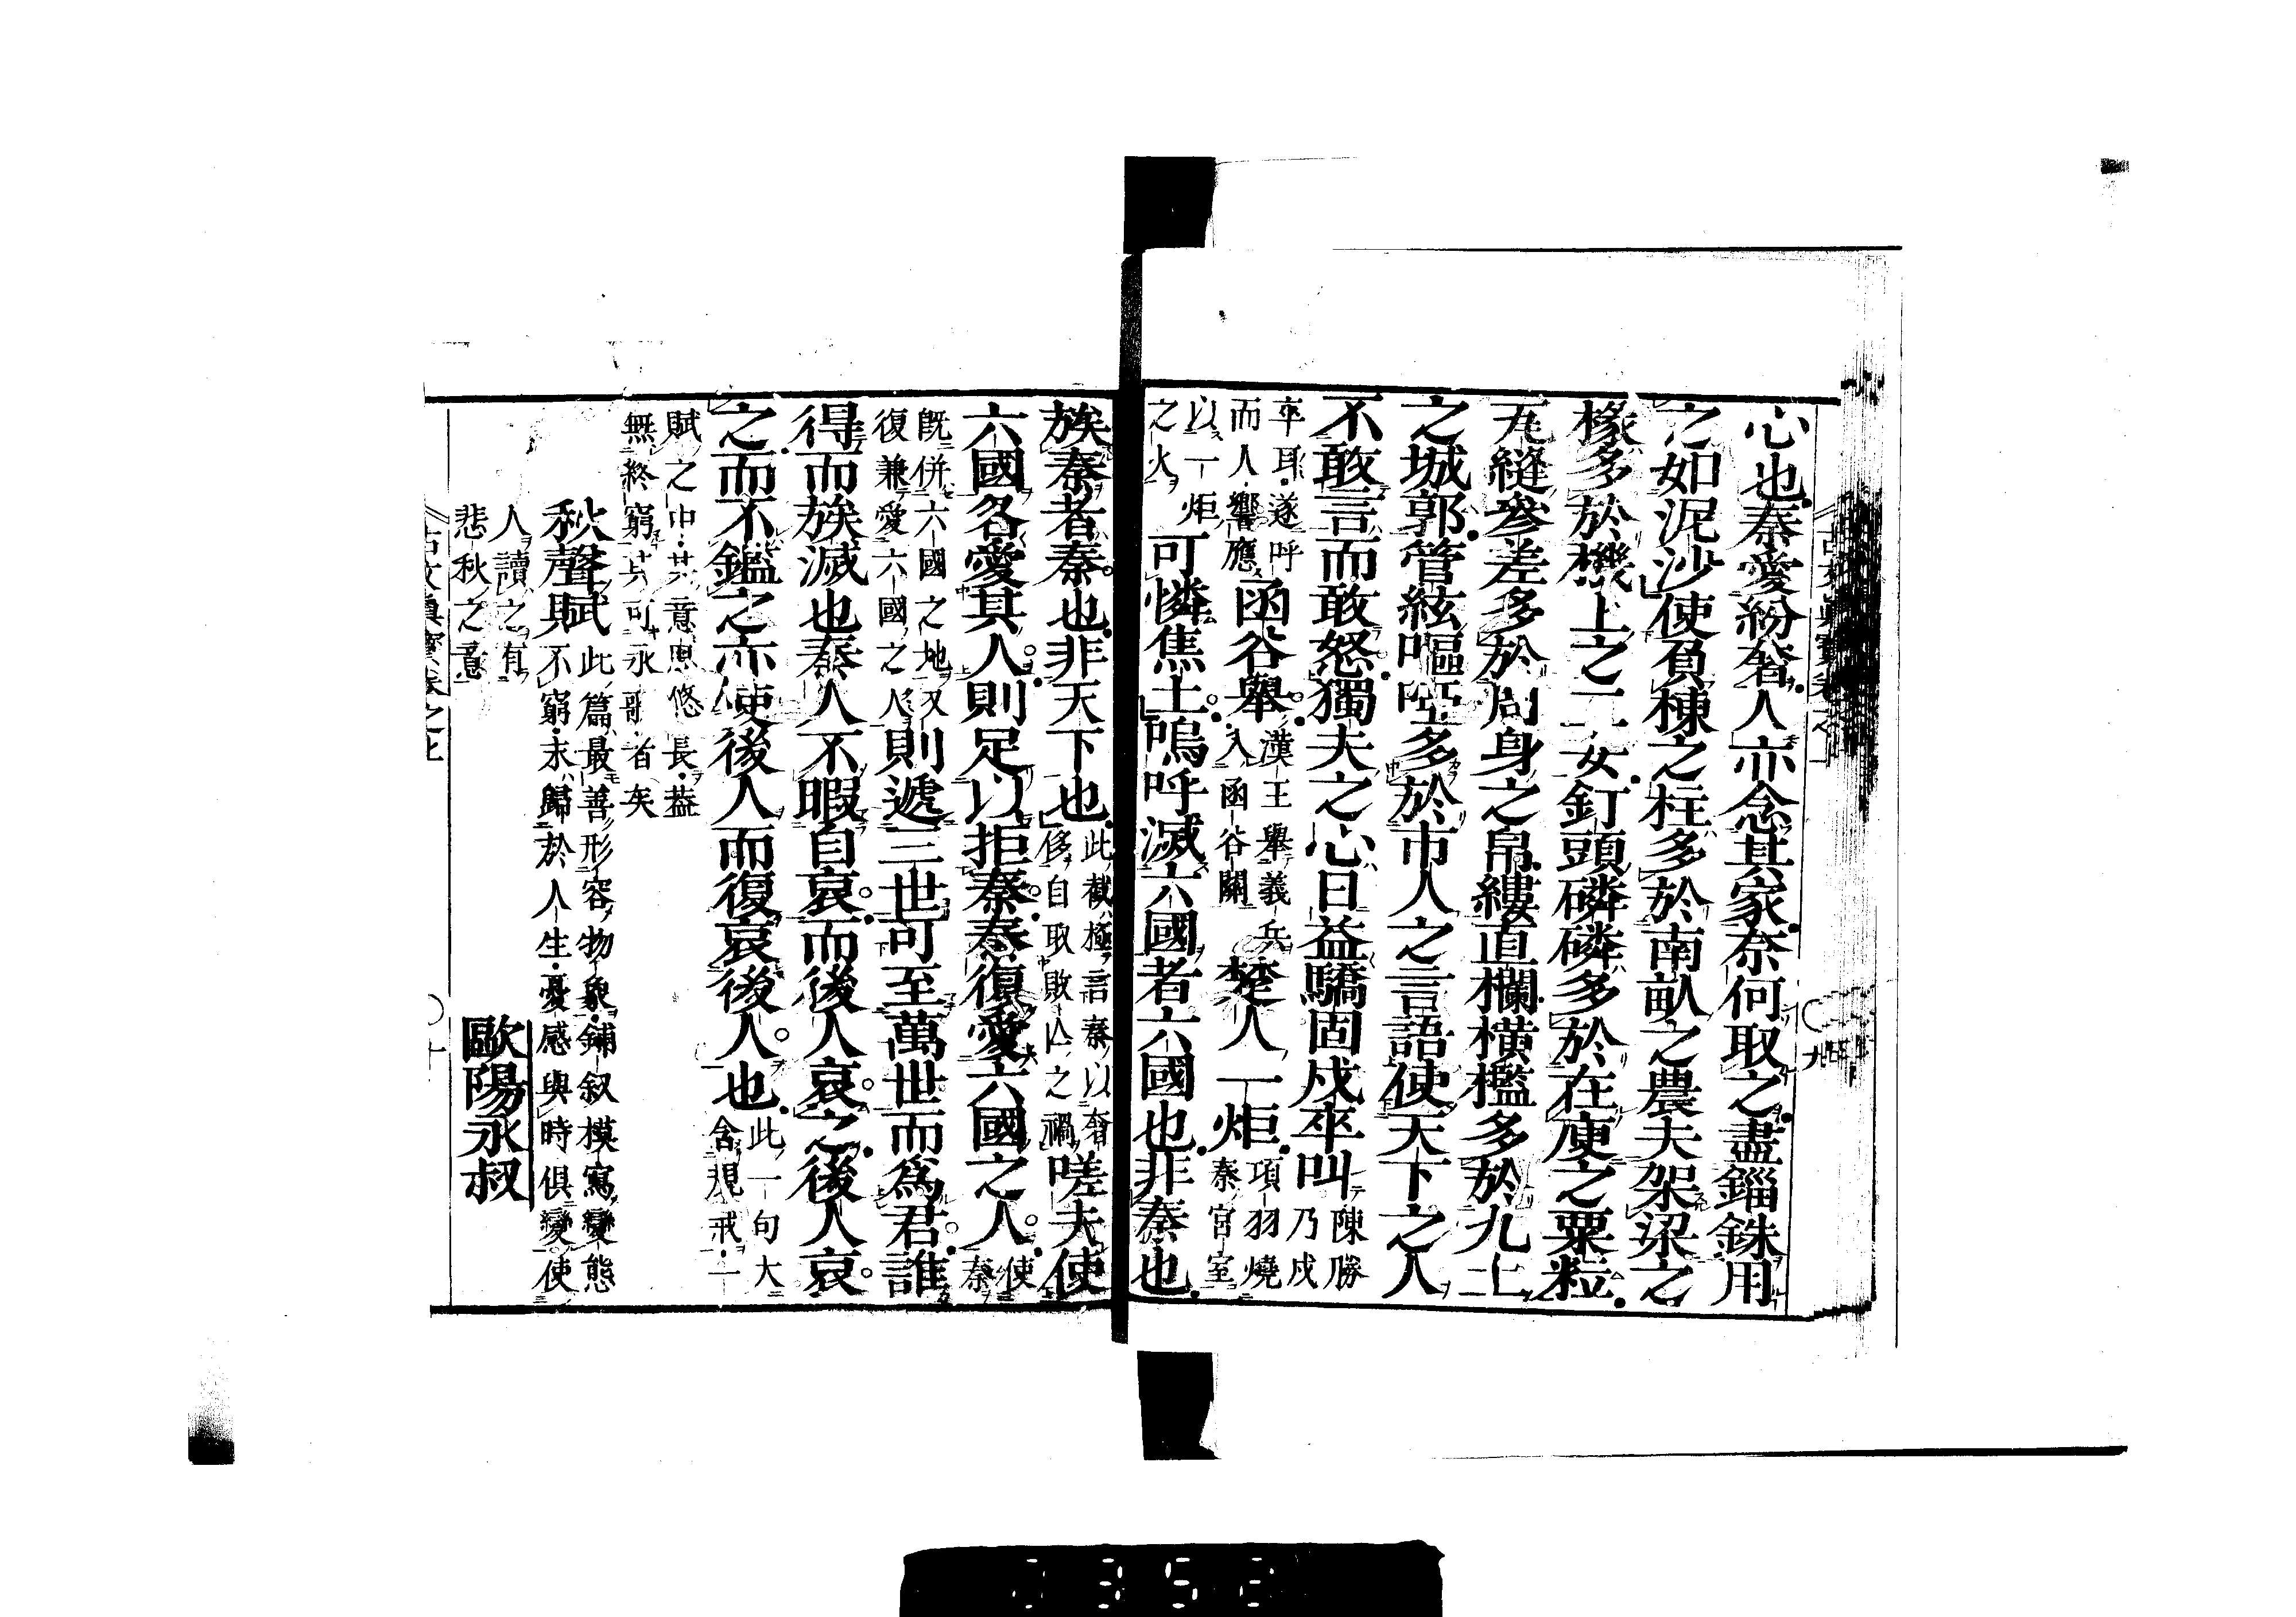 心也秦愛紛奢人亦念其家奈何取之盡錙銖用
之如泥沙使負棟之柱多於南畝之農夫架梁之
椽多於機上之工女釘頭磷磷多於在庾之粟粒
瓦縫參差多於周身之帛縷直欄橫檻多於九土
之城郭管絃嘔啞多於市人之言語使天下之人
不敢言而敢怒獨夫之心日益驕固戍卒叫陳勝乃戍
卒耳遂呼而人響應函谷舉漢王舉義兵入函谷關楚人一炬項羽燒秦宮室
以一炬之火可憐焦土嗚呼滅六國者六國也非秦也
族秦者秦也非天下也此截極言秦以奢侈自取敗亡之禍嗟夫使
六國各愛其人則足以拒秦秦復愛六國之人使秦
既併六國之地又復兼愛六國之人則遞三世可至萬世而爲君誰
得而族滅也秦人不暇自哀而後人哀之後人哀
之而不鑑之亦使後人而復哀後人也此一句大含規戒一
賦之中其意思悠長益無終窮其可永歌者矣
秋聲賦此篇最善形容物象鋪叙模寫變態不窮末歸於人生憂感與時俱變使
人讀之有悲秋之意 歐陽永叔